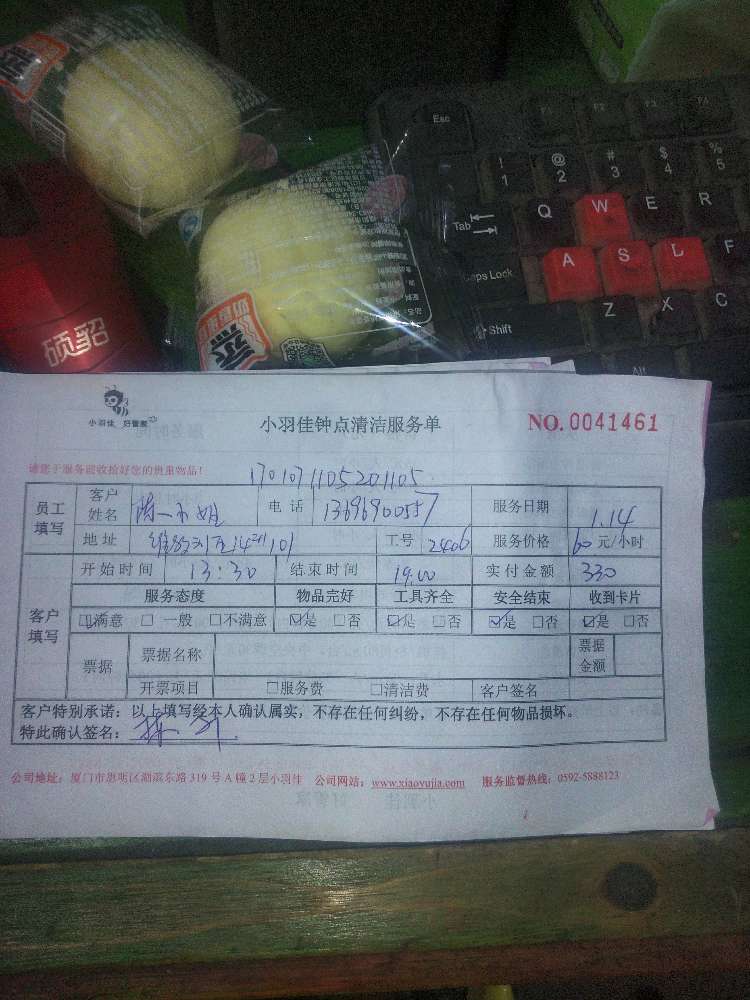 蒸
蒸
硕貂
Esc F1 F2 F3 F4
! 1 @ 2 # 3 $ 4 % 5
Tab Q W E R
Caps Lock A S L F
Shift Z X C
Alt
小羽佳 好管家
小羽佳钟点清洁服务单
NO. 0041461
请您于服务前收拾好您的贵重物品!
1701071105201105
员工填写 客户姓名 陈小姐 电话 13696900557 服务日期 1.14
地址 101 工号 2406 服务价格 60元/小时
客户填写 开始时间 13:30 结束时间 19:00 实付金额 330
服务态度 物品完好 工具齐全 安全结束 收到卡片
☑满意 □一般 □不满意 ☑是 □否 ☑是 □否 ☑是 □否 ☑是 □否
票据 票据名称 票据金额
开票项目 □服务费 □清洁费 客户签名
客户特别承诺:以上填写经本人确认属实,不存在任何纠纷,不存在任何物品损坏。
特此确认签名:
公司地址:厦门市思明区湖滨东路319号A幢2层小羽佳 公司网站:www.xiaoyujia.com 服务监督热线:0592-5888123